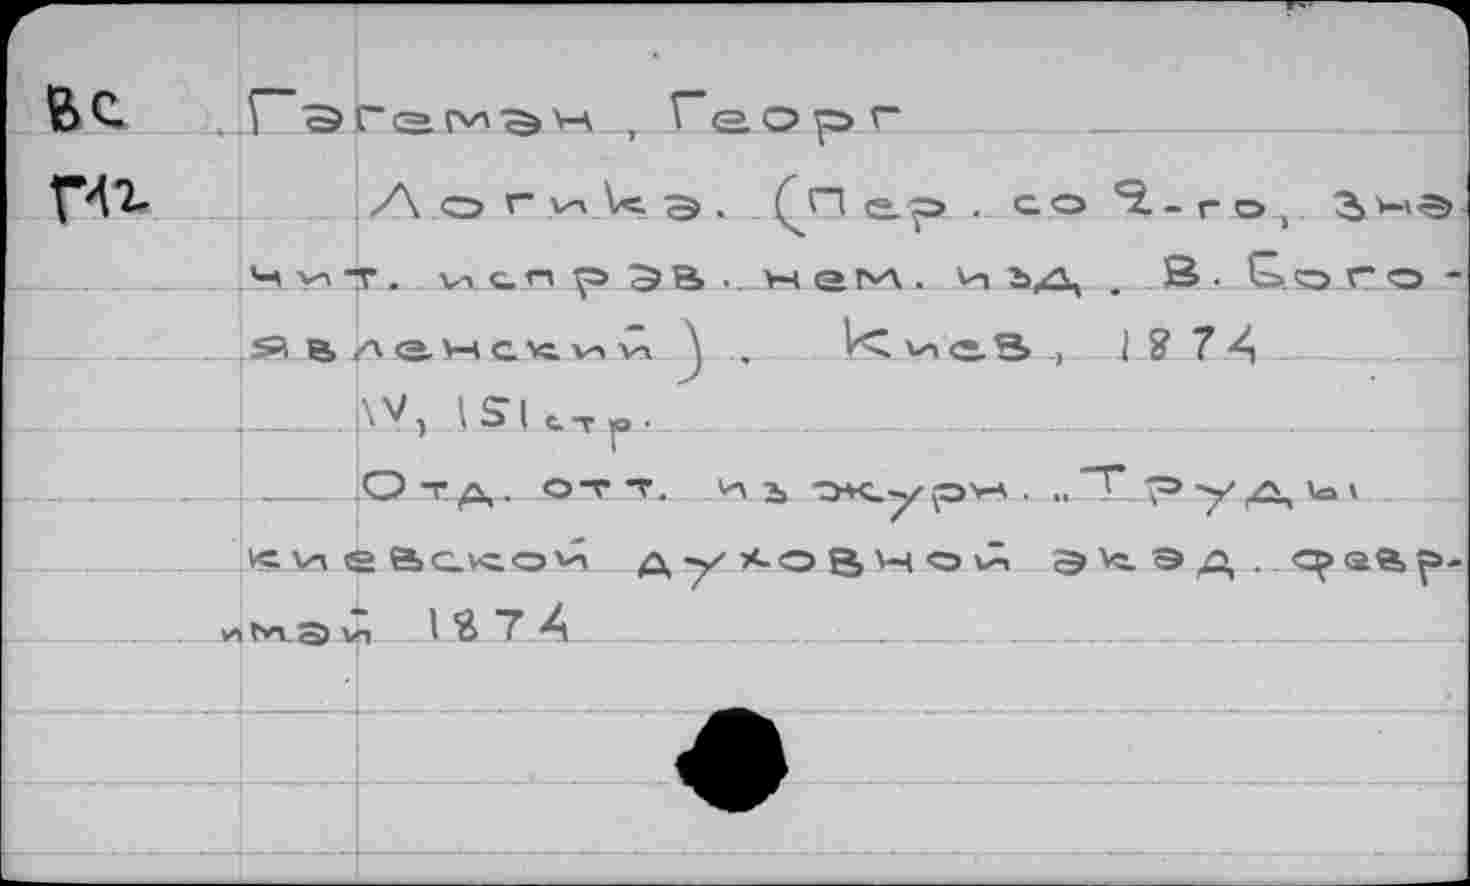 ВС Гагеман, Георг
Г42 Логика. (Пер. со 2-го, зна
чит. исправ. нем. изд. В. Бого-
явленский). Киев, 1874
IV, 151 стр.
Отд. отт. из журн. „Труды
киевской духовной акад. февр-
имай 1874